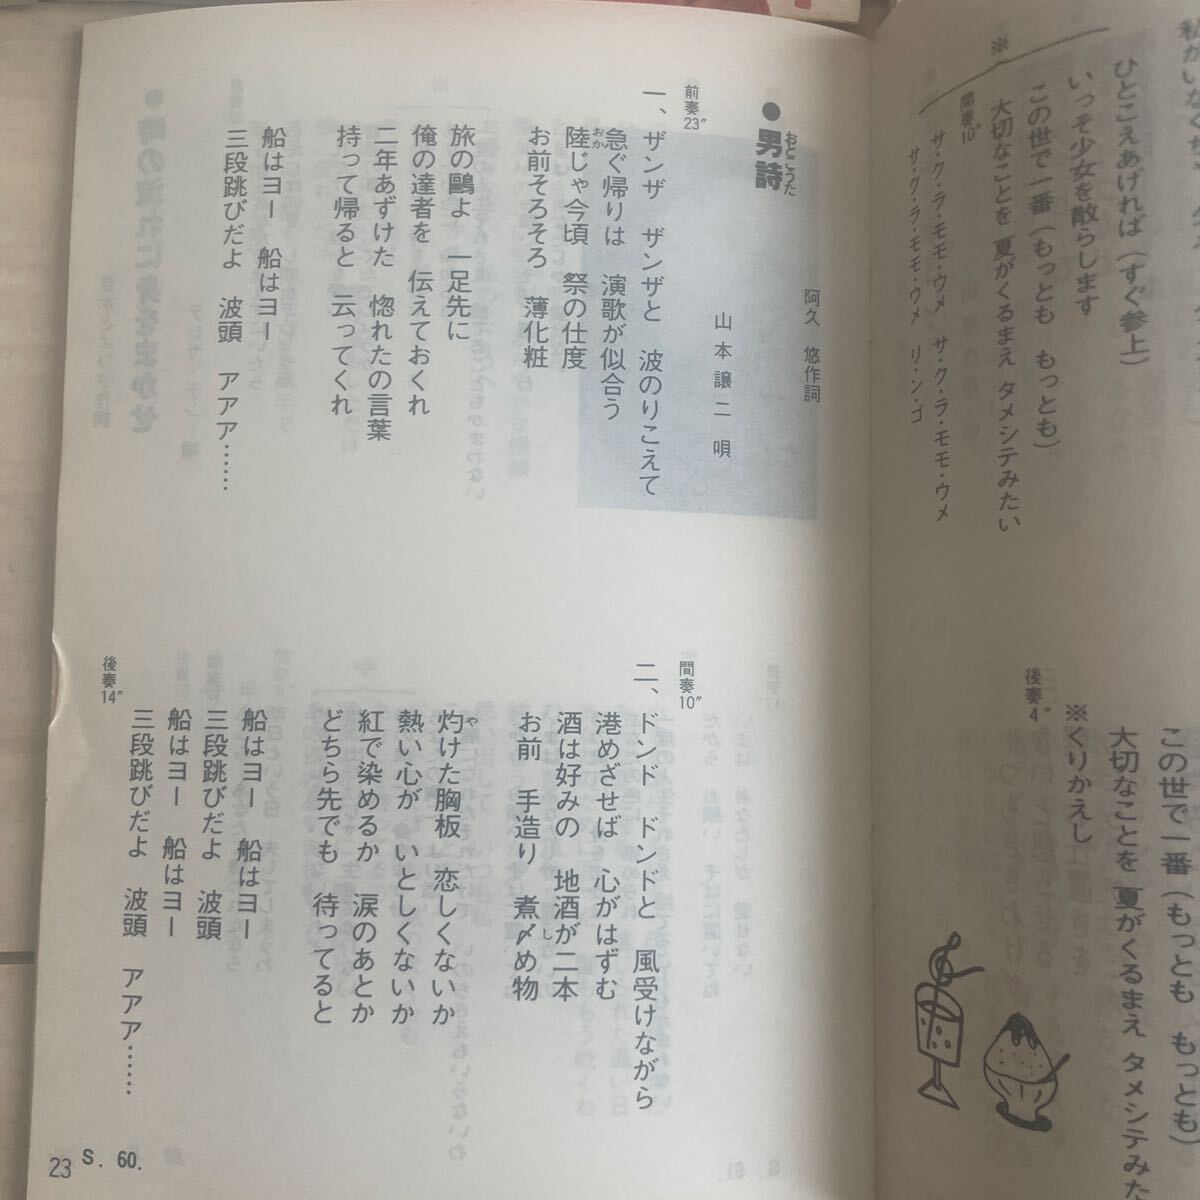 私がいなくちゃ
ひとこえあげれば（すぐ参上）
いっそ少女を散らします
※
この世で一番（もっとも もっとも）
大切なことを 夏がくるまえ タメシテみたい
間奏10″
サ・ク・ラ・モモ・ウメ サ・ク・ラ・モモ・ウメ
サ・ク・ラ・モモ・ウメ リ・ン・ゴ
この世で一番（もっとも もっとも）
大切なことを 夏がくるまえ タメシテみた
※くりかえし
後奏4″
●男詩
おとこうた
阿久 悠作詞
山本譲二 唄
前奏23″
一、ザンザ ザンザと 波のりこえて
急ぐ帰りは 演歌が似合う
陸じゃ今頃 祭の仕度
おか
お前そろそろ 薄化粧
旅の鷗よ 一足先に
俺の達者を 伝えておくれ
二年あずけた 惚れたの言葉
持って帰ると 云ってくれ
船はヨー 船はヨー
三段跳びだよ 波頭 アアア……
間奏10″
二、ドンド ドンドと 風受けながら
港めざせば 心がはずむ
酒は好みの 地酒が二本
お前 手造り 煮〆め物
し
灼けた胸板 恋しくないか
や
熱い心が いとしくないか
紅で染めるか 涙のあとか
どちら先でも 待ってると
船はヨー 船はヨー
三段跳びだよ 波頭
船はヨー 船はヨー
三段跳びだよ 波頭 アアア……
後奏14″
23 S. 60.